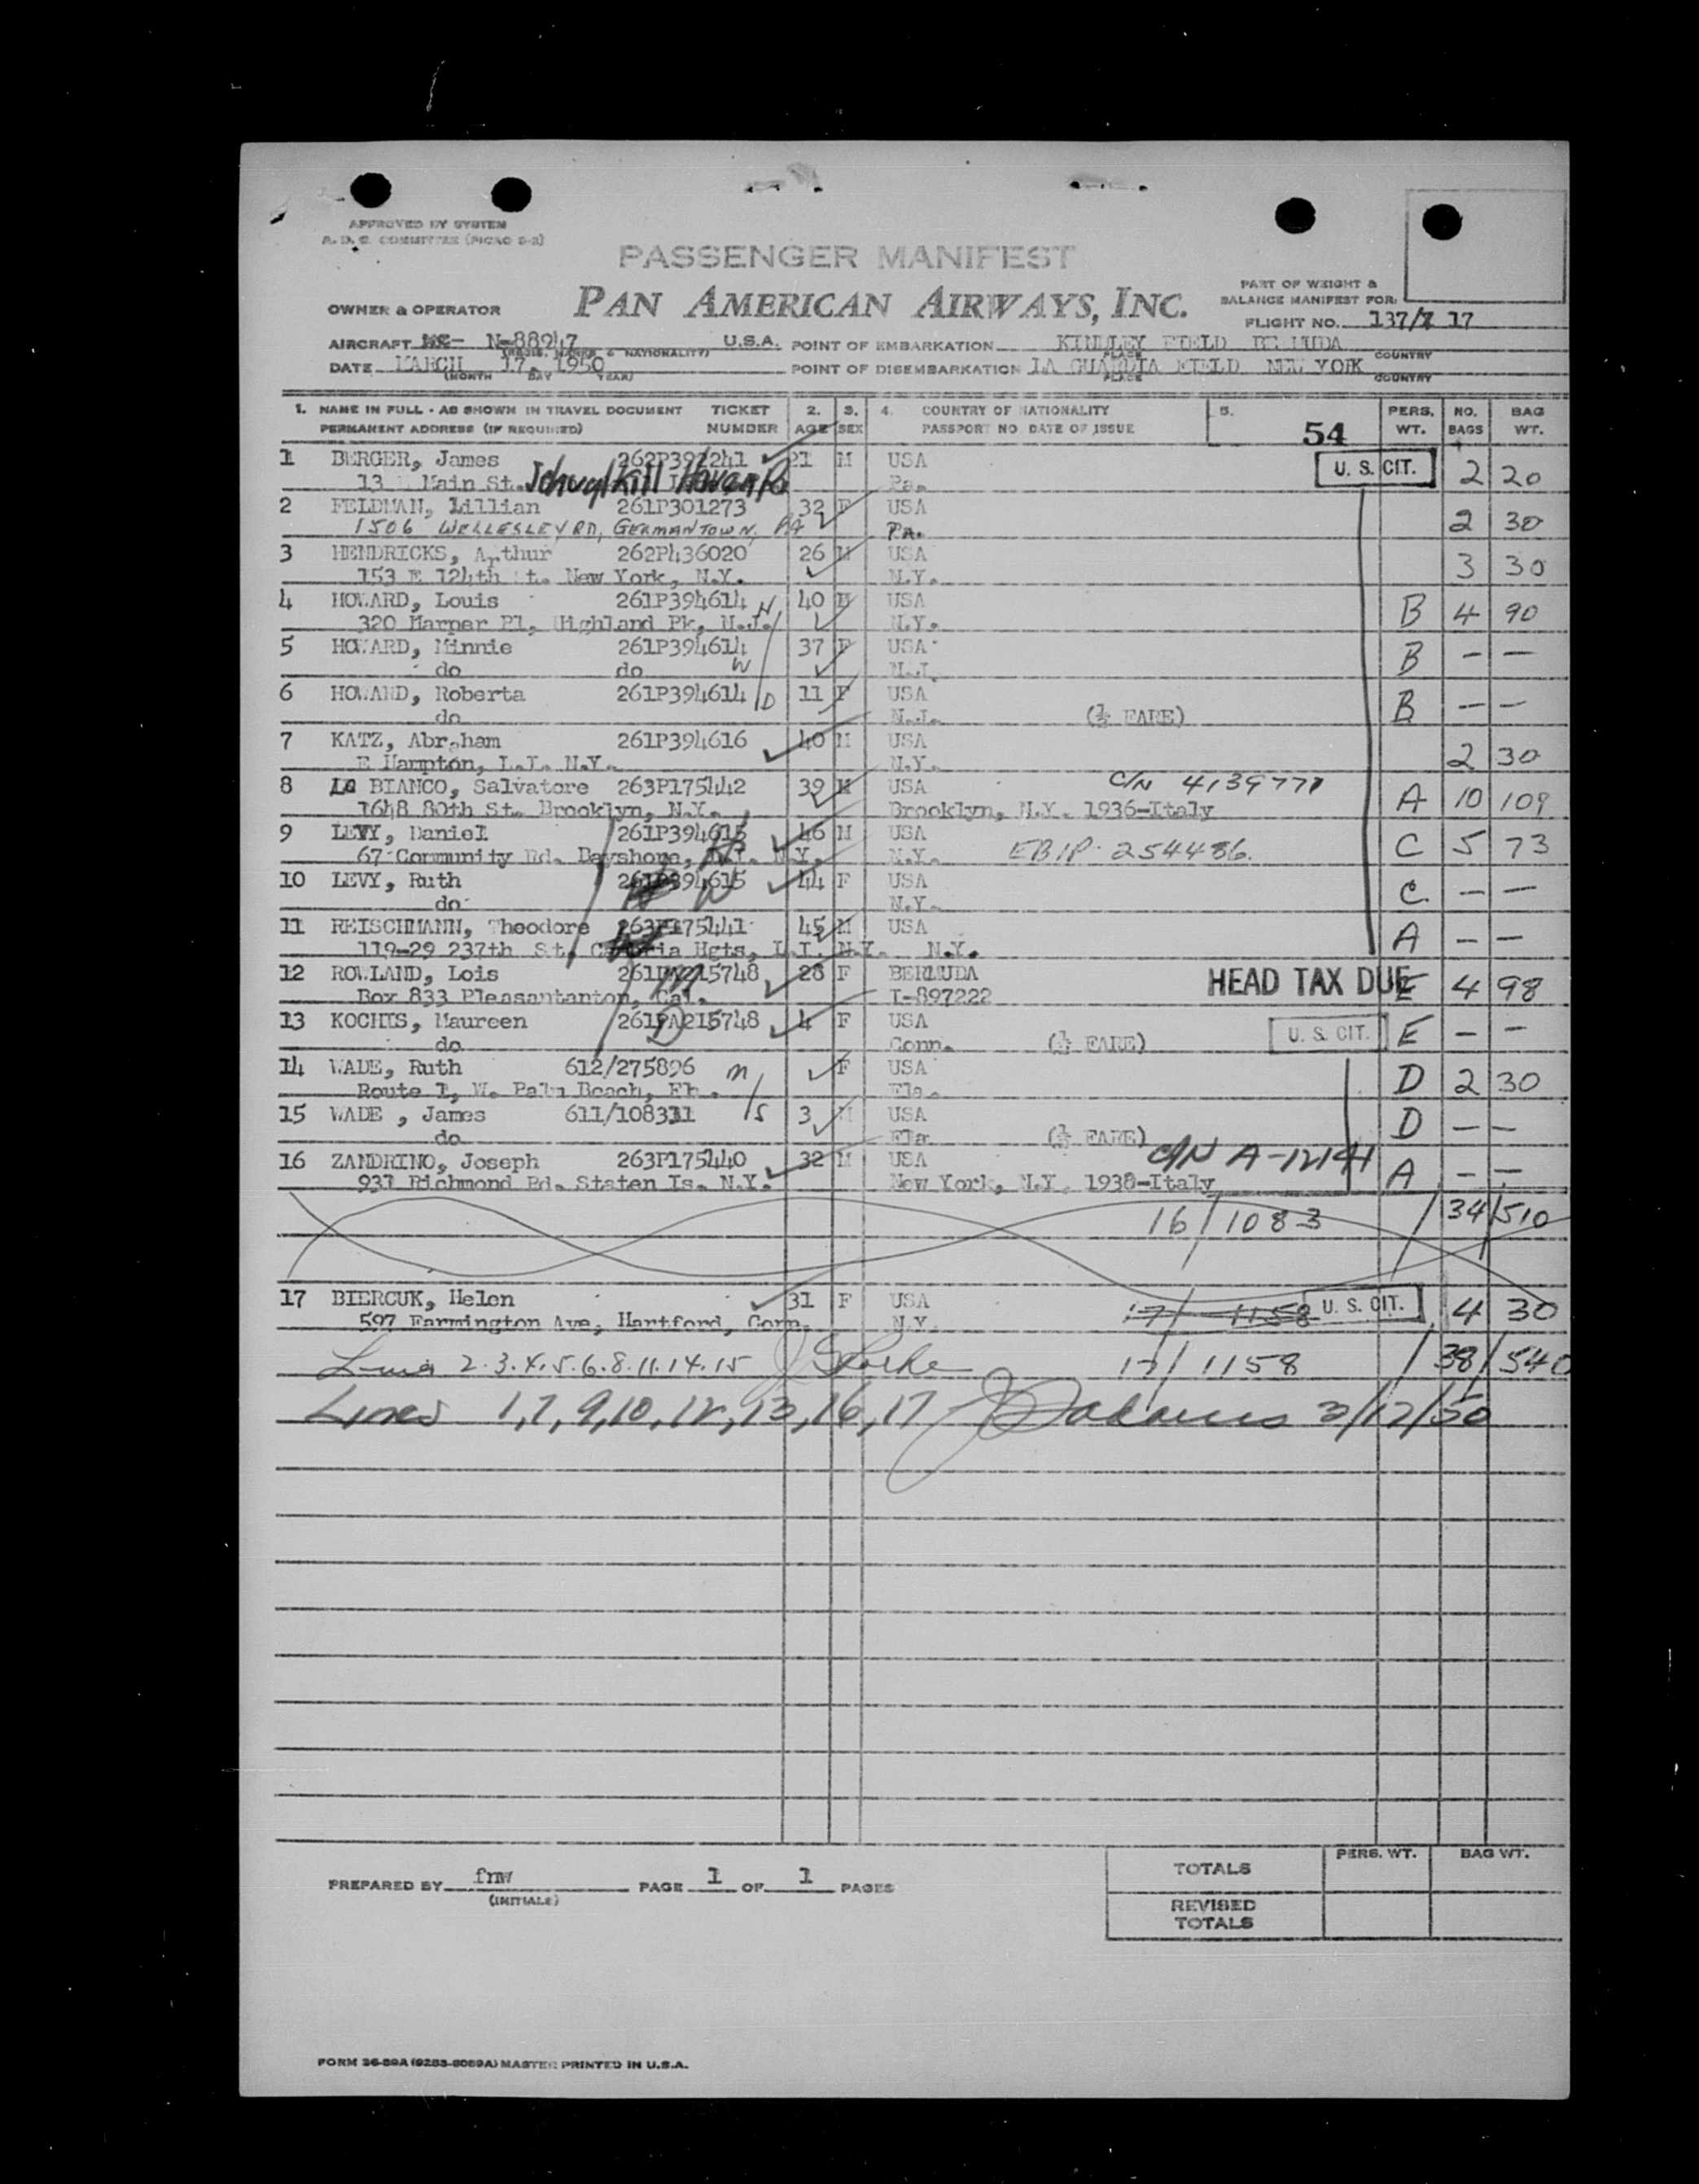 APPROVED BY SYSTEM
A. D. C. COMMITTEE (PICAO 2-2)
PASSENGER MANIFEST
OWNER & OPERATOR PAN AMERICAN AIRWAYS, INC.
PART OF WEIGHT &
BALANCE MANIFEST FOR:
FLIGHT NO. 137/ 17
AIRCRAFT N-88947 U.S.A. POINT OF EMBARKATION KINDLEY FIELD BERMUDA
(REGIS. MARKS & NATIONALITY) PLACE COUNTRY
DATE MARCH 17, 1950 POINT OF DISEMBARKATION LA GUARDIA FIELD NEW YORK
(MONTH DAY YEAR) PLACE COUNTRY
1. NAME IN FULL - AS SHOWN IN TRAVEL DOCUMENT TICKET 2. 3. 4. COUNTRY OF NATIONALITY 5. PERS. NO. BAG
PERMANENT ADDRESS (IF REQUIRED) NUMBER AGE SEX PASSPORT NO DATE OF ISSUE 54 WT. BAGS WT.
1 BERGER, James 262P391241 21 M USA U. S. CIT. 2 20
13 Main St. Schuylkill Haven Pa Pa.
2 FELDMAN, Lillian 261P301273 32 F USA 2 30
1506 WELLESLEY RD, GERMANTOWN, PA Pa.
3 HENDRICKS, Arthur 262P436020 26 M USA 3 30
153 E 124th St. New York, N.Y. N.Y.
4 HOWARD, Louis 261P394614 H 40 M USA B 4 90
320 Harper Pl, Highland Pk, N.J. N.Y.
5 HOWARD, Minnie 261P394614 37 F USA B — —
do do W N.J.
6 HOWARD, Roberta 261P394614 D 11 F USA B — —
do N.J. (½ FARE)
7 KATZ, Abraham 261P394616 40 M USA 2 30
E Hampton, L.I. N.Y. N.Y.
8 LO BIANCO, Salvatore 263P175442 39 M USA C/N 4139771 A 10 109
1648 80th St. Brooklyn, N.Y. Brooklyn, N.Y. 1936-Italy
9 LEVY, Daniel 261P394615 46 M USA C 5 73
67 Community Rd. Bayshore, L.I. N.Y. H N.Y. EBIP 254486
10 LEVY, Ruth 261P394615 44 F USA C. — —
do W N.Y.
11 REISCHMANN, Theodore 263P175441 45 M USA A — —
119-29 237th St, Cambria Hgts, L.I. N.Y. N.Y.
12 ROWLAND, Lois 261PA215748 28 F BERMUDA HEAD TAX DUE E 4 98
Box 833 Pleasantanton, Cal. M I-897222
13 KOCHIS, Maureen 261PA215748 4 F USA U. S. CIT. E — —
do D Conn. (½ FARE)
14 WADE, Ruth 612/275896 M F USA D 2 30
Route 1, W. Palm Beach, Fla. Fla.
15 WADE , James 611/108331 S 3 M USA D — —
do Fla (½ FARE)
16 ZANDRINO, Joseph 263P175440 32 M USA C/N A-12141 A — —
937 Richmond Rd. Staten Is. N.Y. New York, N.Y. 1938-Italy
16/1083 / 34/510
17 BIERCUK, Helen 31 F USA 17/ 1158 U. S. CIT. 4 30
597 Farmington Ave, Hartford, Conn. N.Y.
Lines 2.3.4.5.6.8.11.14.15 17/1158 / 38/540
Lines 1,7,9,10,12,13,16,17 Adams 3/17/50
PREPARED BY fnw PAGE 1 OF 1 PAGES
(INITIALS)
PERS. WT. BAG WT.
TOTALS
REVISED
TOTALS
FORM 36-89A (9283-8089A) MASTER PRINTED IN U.S.A.